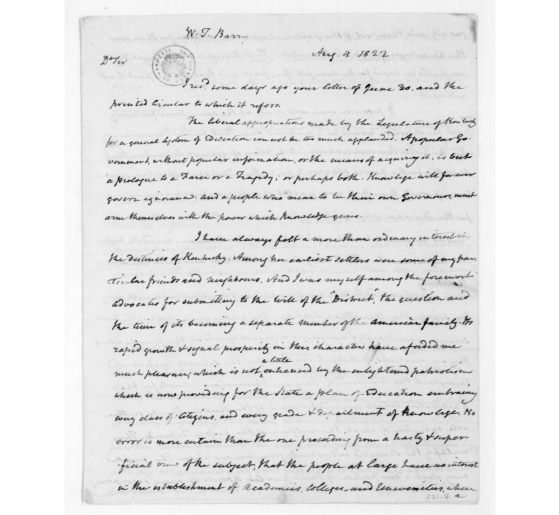 W. T. Barry
Aug. 4 1822
Dr Sir
I recd. some days ago your letter of June 30. and the
printed Circular to which it refers.
The liberal appropriations made by the Legislature of Kentucky
for a general System of Education can not be too much applauded. A popular Go-
vernment, without popular information, or the means of acquiring it, is but
a prologue to a Farce or a Tragedy; or perhaps both. Knowledge will for ever
govern ignorance: and a people who mean to be their own Governors, must
arm themselves with the power which knowledge gives.
I have always felt a more than ordinary interest in
the destinies of Kentucky. Among her earliest settlers were some of my par-
ticular friends and neighbours. And I was myself among the foremost
advocates for submitting to the will of the "District", the question and
the time of its becoming a separate member of the American family. Its
rapid growth & signal prosperity in this character have afforded me
much pleasure; which is not
a little
enhanced by the enlightened patriotism
which is now providing for the State a plan of Education embracing
every class of Citizens, and every grade & department of Knowledge. No
error is more certain than the one proceeding from a hasty & super-
ficial view of the subject, that the people at large have no interest
in the establishment of Academies, Colleges, and Universities, where
a